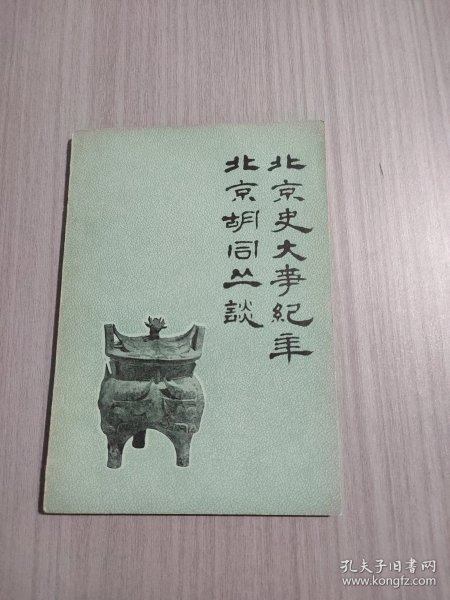 北京史大事紀年
北京胡同丛談
孔夫子旧书网
www.kongfz.com